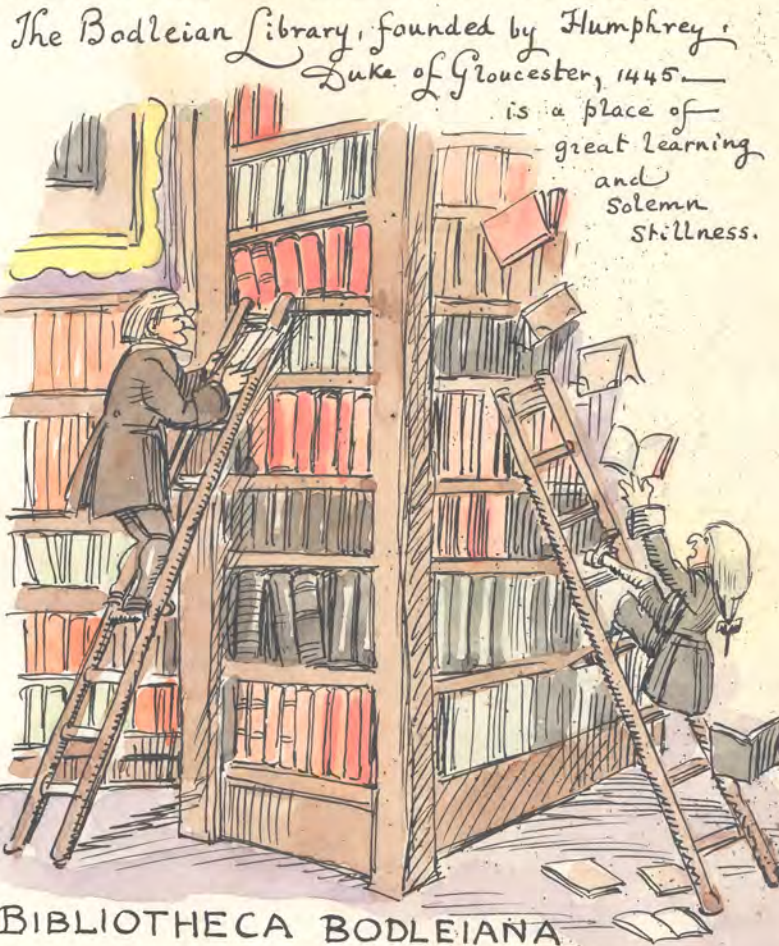 The Bodleian Library, founded by Humphrey.
Duke of Gloucester, 1445—
is a place of
great learning
and
solemn
stillness.
BIBLIOTHECA BODLEIANA